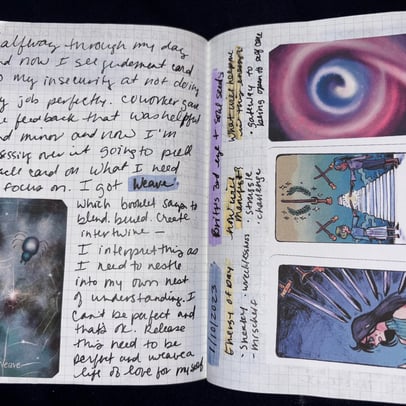 halfway through my day
and now I see judgement card
to my insecurity at not doing
my job perfectly. coworker gave
me feedback that was helpful
and minor and now I'm
obsessing over it going to pull
self card on what I need
to focus on. I got Weave.
Which booklet says to
blend. build. create
intertwine —
I interpret this as
I need to nestle
into my own nest
of understanding. I
can't be perfect and
that's ok. Release
this need to be
perfect and weave a
life of love for myself
Weave
1/10/2023
Energy of Day
• sneaky • wrecklessness
- mischief
how will
manifest
• struggle
• challenge
what will help me
with this energy
gateway to
being open to self care